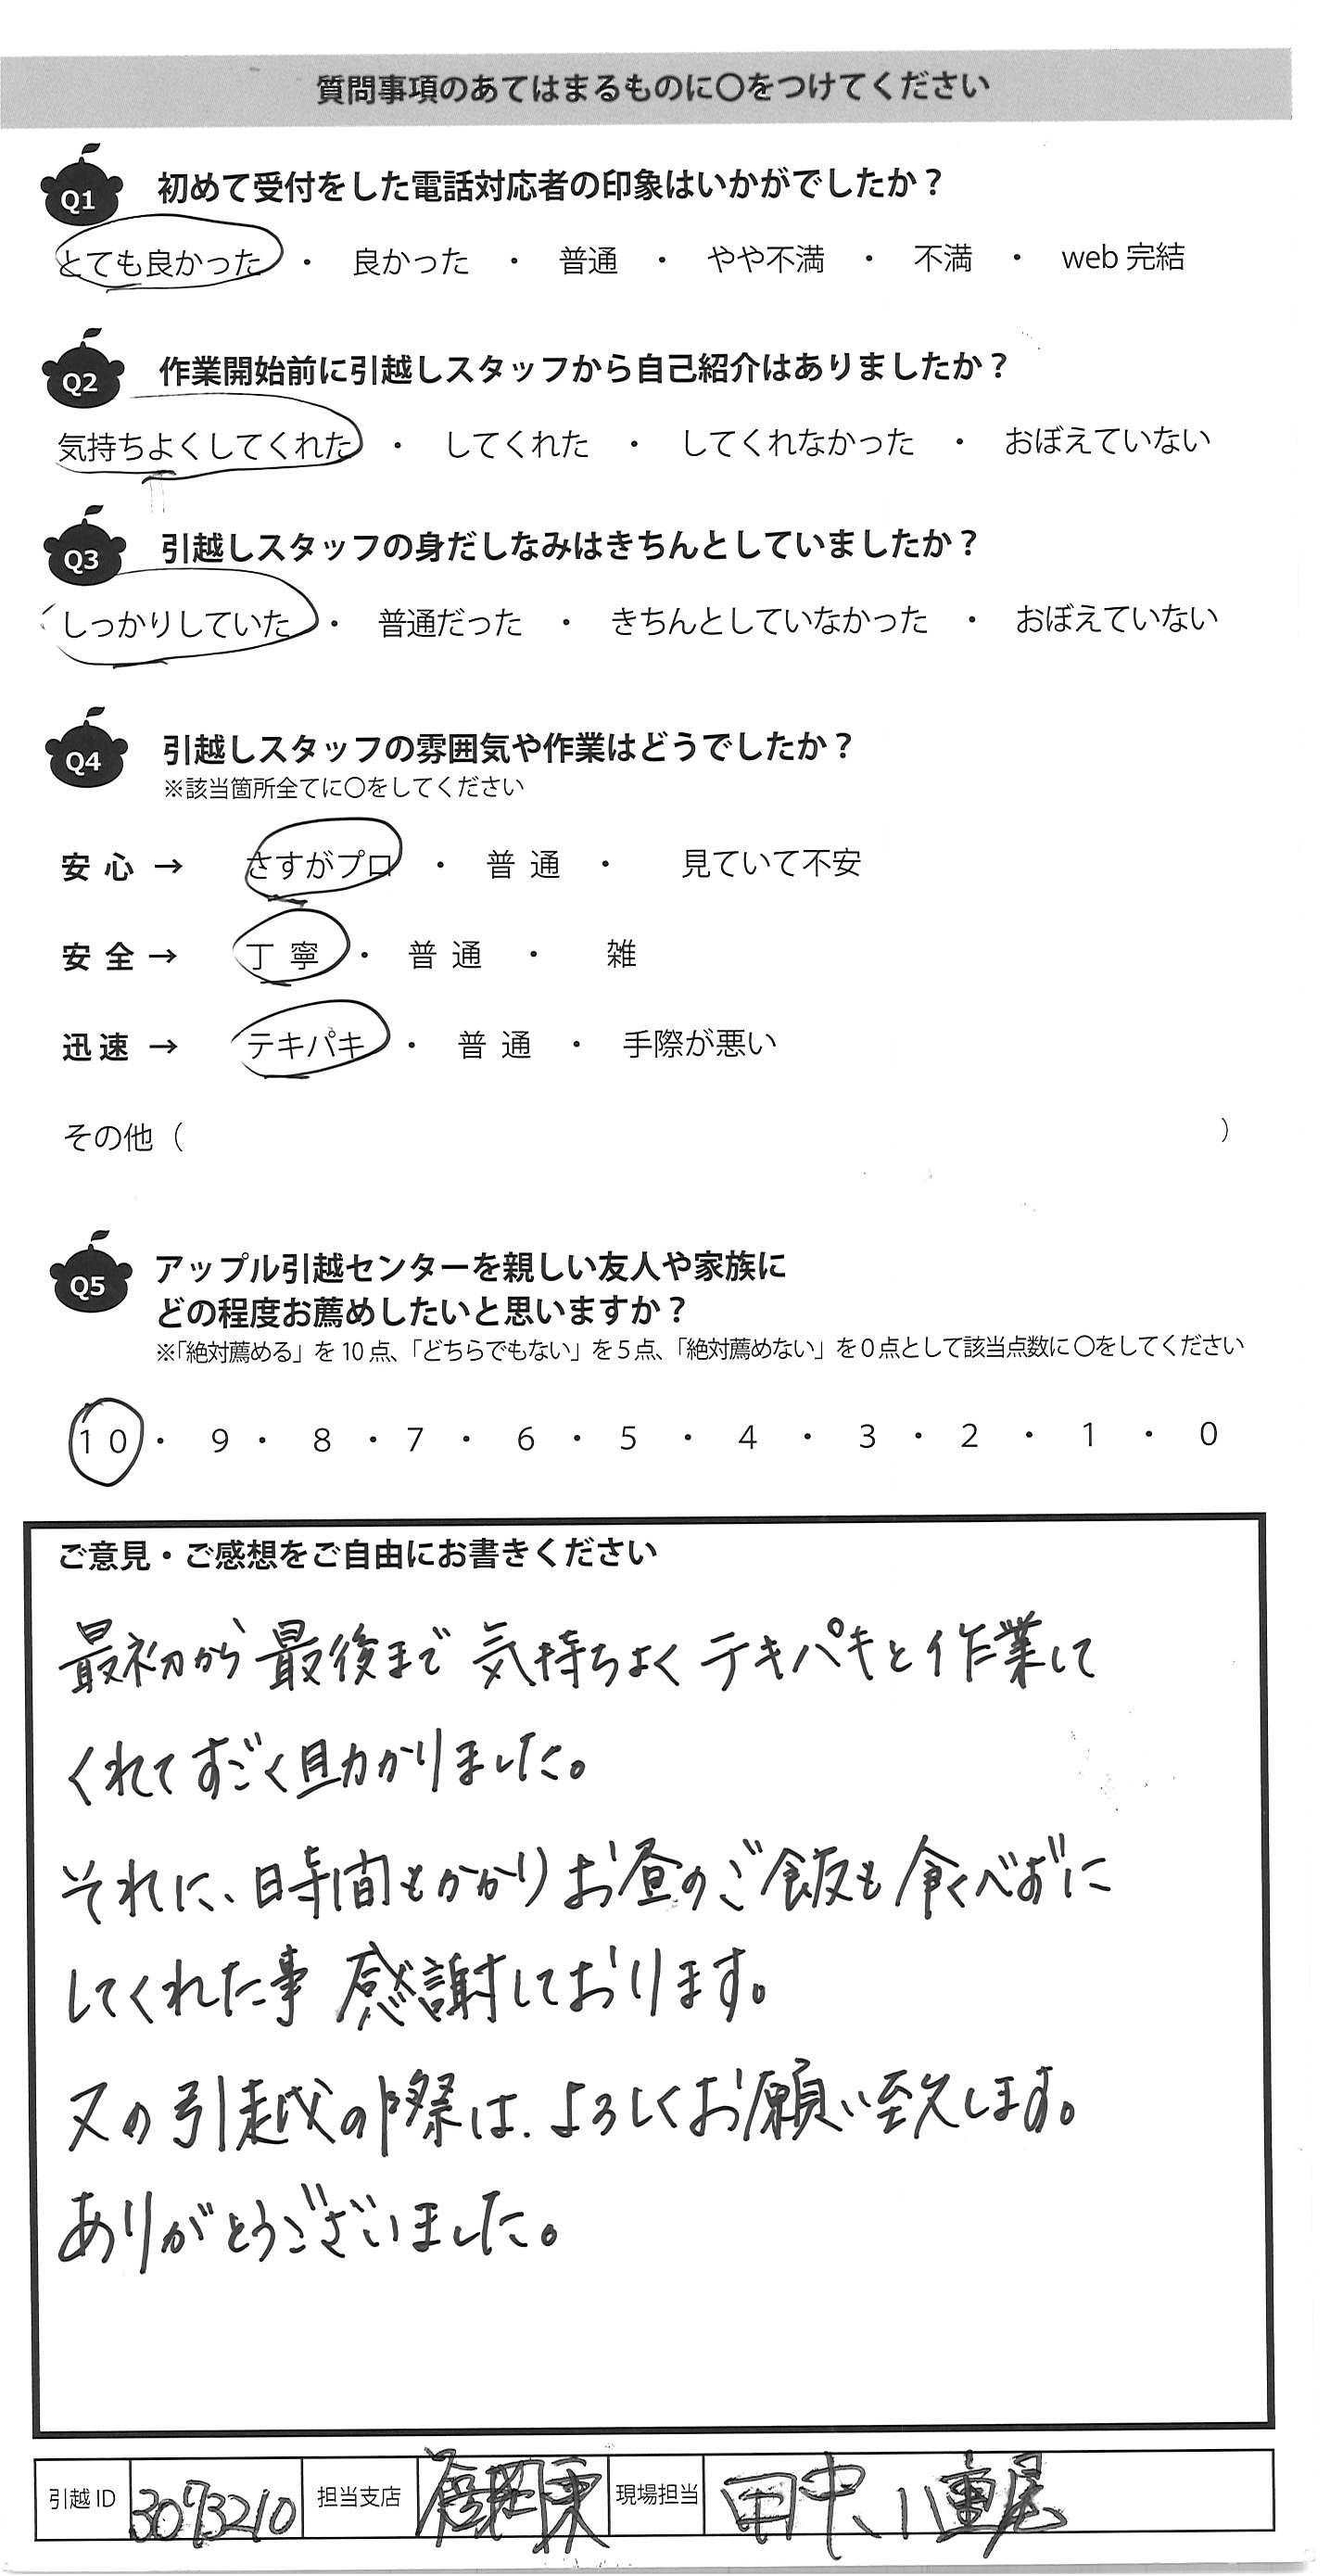 質問事項のあてはまるものに〇をつけてください
Q1 初めて受付をした電話対応者の印象はいかがでしたか？
とても良かった ・ 良かった ・ 普通 ・ やや不満 ・ 不満 ・ web 完結
Q2 作業開始前に引越しスタッフから自己紹介はありましたか？
気持ちよくしてくれた ・ してくれた ・ してくれなかった ・ おぼえていない
Q3 引越しスタッフの身だしなみはきちんとしていましたか？
しっかりしていた ・ 普通だった ・ きちんとしていなかった ・ おぼえていない
Q4 引越しスタッフの雰囲気や作業はどうでしたか？
※該当箇所全てに〇をしてください
安心 → さすがプロ ・ 普通 ・ 見ていて不安
安全 → 丁寧 ・ 普通 ・ 雑
迅速 → テキパキ ・ 普通 ・ 手際が悪い
その他（ ）
Q5 アップル引越センターを親しい友人や家族に
どの程度お薦めしたいと思いますか？
※「絶対薦める」を10点、「どちらでもない」を5点、「絶対薦めない」を0点として該当点数に〇をしてください
10 ・ 9 ・ 8 ・ 7 ・ 6 ・ 5 ・ 4 ・ 3 ・ 2 ・ 1 ・ 0
ご意見・ご感想をご自由にお書きください
最初から最後まで気持ちよくテキパキと作業して
くれてすごく助かりました。
それに、時間もかかりお昼のご飯も食べずに
してくれた事 感謝しております。
又の引越の際は、よろしくお願い致します。
ありがとうございました。
引越ID 3073210 担当支店 現場担当 田中、